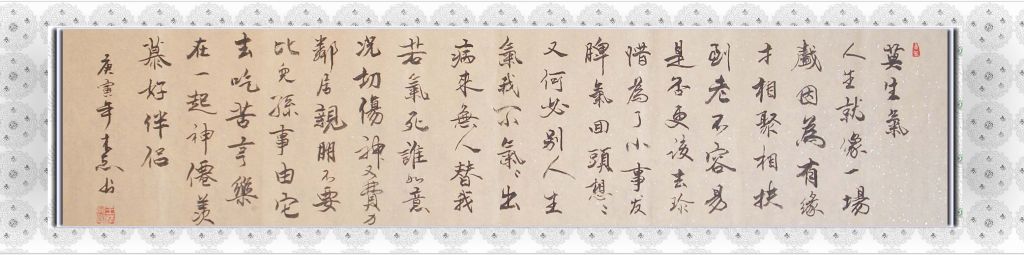 莫生氣
人生就像一場
戲因為有緣
才相聚相扶
到老不容易
是否更該去珍
惜為了小事发
脾氣回頭想〻
又何必别人生
氣我不氣〻出
病來無人替我
若氣死誰如意
况切傷神又費力
鄰居親朋不要
比兒孫事由它
去吃苦享樂
在一起神僊羡
慕好伴侣
庚寅年书